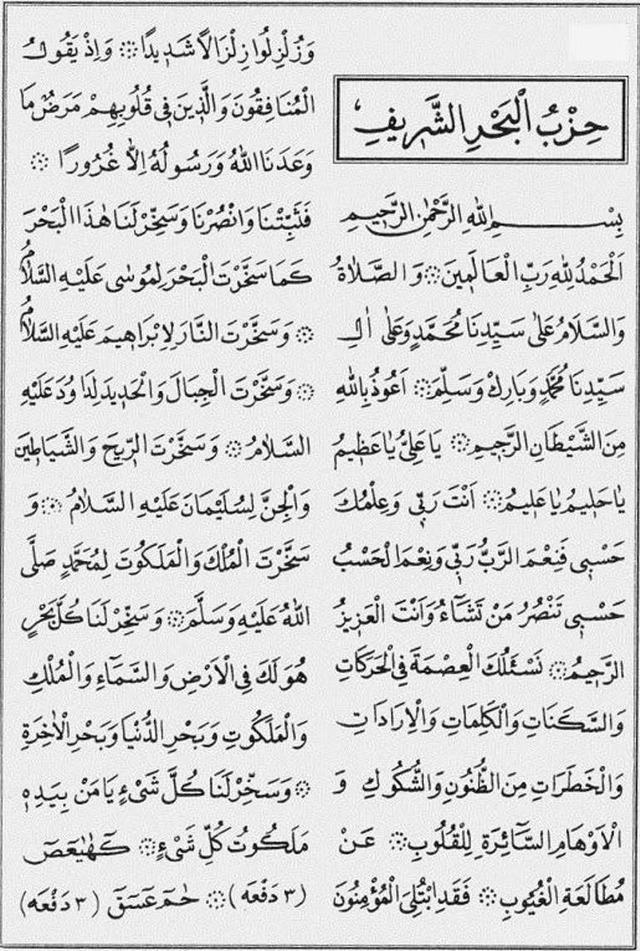 حِزْبُ الْبَحْرِ الشَّرِيفِ
بِسْمِ اللهِ الرَّحْمٰنِ الرَّحِيمِ
اَلْحَمْدُ لِلّٰهِ رَبِّ الْعَالَمِينَ ۞ وَالصَّلَاةُ
وَالسَّلَامُ عَلٰى سَيِّدِنَا مُحَمَّدٍ وَعَلٰى اٰلِ
سَيِّدِنَا مُحَمَّدٍ وَبَارِكْ وَسَلِّمْ ۞ اَعُوذُ بِاللهِ
مِنَ الشَّيْطَانِ الرَّجِيمِ ۞ يَا عَلِيُّ يَا عَظِيمُ
يَا حَلِيمُ يَا عَلِيمُ ۞ اَنْتَ رَبِّي وَعِلْمُكَ
حَسْبِي فَنِعْمَ الرَّبُّ رَبِّي وَنِعْمَ الْحَسْبُ
حَسْبِي تَنْصُرُ مَنْ تَشَاءُ وَاَنْتَ الْعَزِيزُ
الرَّحِيمُ ۞ نَسْئَلُكَ الْعِصْمَةَ فِي الْحَرَكَاتِ
وَالسَّكَنَاتِ وَالْكَلِمَاتِ وَالْاِرَادَاتِ
وَالْخَطَرَاتِ مِنَ الظُّنُونِ وَالشُّكُوكِ وَ
الْاَوْهَامِ السَّاتِرَةِ لِلْقُلُوبِ ۞ عَنْ
مُطَالَعَةِ الْغُيُوبِ ۞ فَقَدِ ابْتُلِيَ الْمُؤْمِنُونَ
وَزُلْزِلُوا زِلْزَالًا شَدِيدًا ۞ وَاِذْ يَقُولُ
الْمُنَافِقُونَ وَالَّذِينَ فِي قُلُوبِهِمْ مَرَضٌ مَا
وَعَدَنَا اللهُ وَرَسُولُهُ اِلَّا غُرُورًا ۞
فَثَبِّتْنَا وَانْصُرْنَا وَسَخِّرْ لَنَا هٰذَا الْبَحْرَ
كَمَا سَخَّرْتَ الْبَحْرَ لِمُوسٰى عَلَيْهِ السَّلَامُ
۞ وَسَخَّرْتَ النَّارَ لِاِبْرَاهِيمَ عَلَيْهِ السَّلَامُ
۞ وَسَخَّرْتَ الْجِبَالَ وَالْحَدِيدَ لِدَاوُدَ عَلَيْهِ
السَّلَامُ ۞ وَسَخَّرْتَ الرِّيحَ وَالشَّيَاطِينَ
وَالْجِنَّ لِسُلَيْمَانَ عَلَيْهِ السَّلَامُ ۞ وَ
سَخَّرْتَ الْمُلْكَ وَالْمَلَكُوتَ لِمُحَمَّدٍ صَلَّى
اللهُ عَلَيْهِ وَسَلَّمَ ۞ وَسَخِّرْ لَنَا كُلَّ بَحْرٍ
هُوَ لَكَ فِي الْاَرْضِ وَالسَّمَاءِ وَالْمُلْكِ
وَالْمَلَكُوتِ وَبَحْرِ الدُّنْيَا وَبَحْرِ الْاٰخِرَةِ
۞ وَسَخِّرْ لَنَا كُلَّ شَيْءٍ يَا مَنْ بِيَدِهِ
مَلَكُوتُ كُلِّ شَيْءٍ ۞ كٓهٰيٰعٓصٓ
(٣ دَفْعَه) ۞ حٰمٓ عٓسٓقٓ (٣ دَفْعَه)